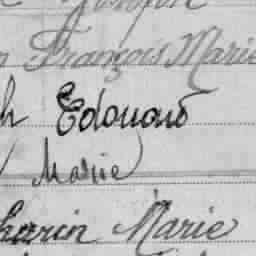 François Marie
h Edouard
Marie
harin Marie